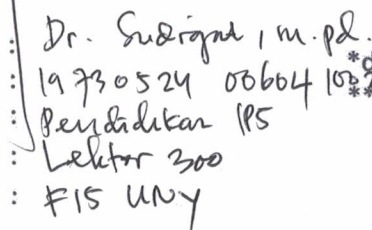 : Dr. Sudrajat, M.Pd.
: 19730524 00604 1002
: Pendidikan IPS
: Lektor 300
: FIS UNY